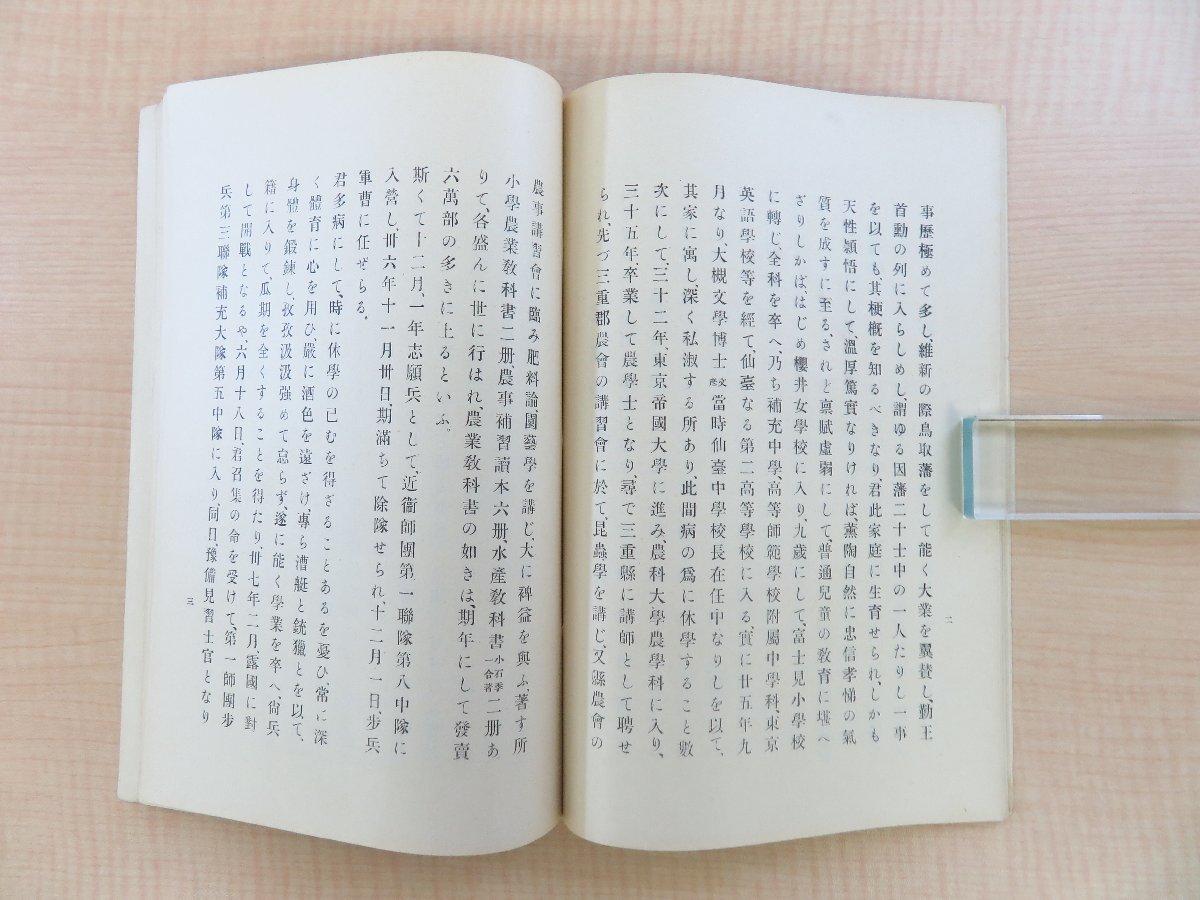 事歷極めて多し、維新の際鳥取藩をして能く大業を翼賛し、勤王
首勳の列に入らしめし、謂ゆる因藩二十士中の一人たりし一事
を以ても、其梗槪を知るべきなり、君此家庭に生育せられ、しかも
天性穎悟にして、溫厚篤實なりければ、薰陶自然に忠信孝悌の氣
質を成すに至る、されと禀賦虛弱にして、普通兒童の敎育に堪へ
ざりしかば、はじめ櫻井女學校に入り、九歲にして、富士見小學校
に轉じ、全科を卒へ、乃ち補充中學、高等師範學校附屬中學科、東京
英語學校等を經て、仙臺なる第二高等學校に入る、實に廿五年九
月なり、大槻文學博士文彥當時仙臺中學校長在任中なりしを以て、
其家に寓し、深く私淑する所あり、此間病の爲に休學すること數
次にして、三十二年、東京帝國大學に進み、農科大學農學科に入り、
三十五年、卒業して農學士となり、尋で三重縣に講師として聘せ
られ、先づ三重郡農會の講習會に於て、昆蟲學を講じ、又縣農會の
二
農事講習會に臨み肥料論園藝學を講じ、大に裨益を與ふ、著す所
小學農業敎科書二册、農事補習讀本六册、水產敎科書小石季一合著二册あ
りて、各盛んに世に行はれ、農業敎科書の如きは、期年にして發賣
六萬部の多きに上るといふ、
斯くて十二月、一年志願兵として、近衞師團第一聯隊第八中隊に
入營し、卅六年十一月卅日、期滿ちて除隊せられ、十二月一日、步兵
軍曹に任ぜらる、
君多病にして、時に休學の已むを得ざることあるを憂ひ常に深
く體育に心を用ひ、嚴に酒色を遠ざけ、專ら漕艇と銃獵とを以て、
身體を鍛鍊し、孜孜汲汲强めて怠らず、遂に能く學業を卒へ、尙兵
籍に入りて、瓜期を全くすることを得たり、卅七年二月露國に對
して開戰となるや、六月十八日、君召集の命を受けて、第一師團步
兵第三聯隊補充大隊第五中隊に入り、同日、豫備見習士官となり
三